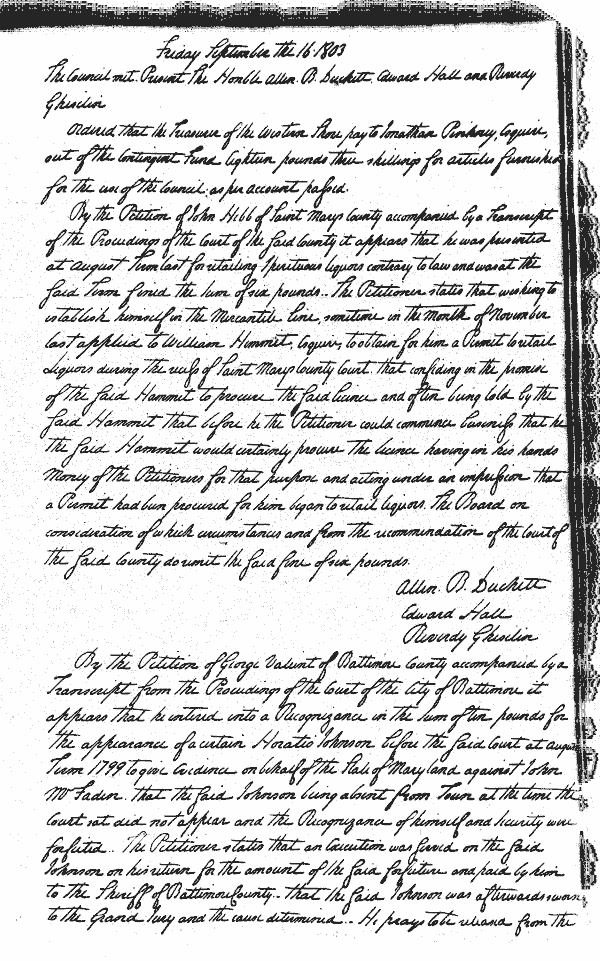 Friday September the 16 1803
The Council met. Present The Honble Allen. B. Duckett. Edward Hall and Reverdy
Ghiselin
Ordered that the Treasurer of the Western Shore pay to Jonathan Pinkney, Esquire,
out of the Contingent Fund Eighteen pounds three shillings for articles furnished
for the use of the Council, as per account passed.
By the Petition of John Hebb of Saint Marys County accompanied by a Transcript
of the Proceedings of the Court of the said County it appears that he was presented
at August Term last for retailing Spirituous liquors contrary to law and was at the
said Term fined the sum of six pounds. The Petitioner states that wishing to
establish himself in the Mercantile line, sometime in the Month of November
last applied to William Hammet, Esquire, to obtain for him a Permit to retail
Liquors during the recess of Saint Marys County Court. that confiding in the promise
of the said Hammet to procure the said licence and often being told by the
said Hammet that before he the Petitioner could commence business that he
the said Hammet would certainly procure the licence having in his hands
Money of the Petitioners for that purpose and acting under an impression that
a Permit had been procured for him began to retail liquors. The Board on
consideration of which circumstances and from the recommendation of the Court of
the said County do remit the said fine of six pounds.
Allen. B. Duckett
Edward Hall
Reverdy Ghiselin
By the Petition of George Valeint of Baltimore County accompanied by a
Transcript from the Proceedings of the Court of the City of Baltimore it
appears that he entered into a Recognizance in the sum of ten pounds for
the appearance of a certain Horatio Johnson before the said Court at August
Term 1799 to give Evidence on behalf of the State of Maryland against John
Mc Faden. that the said Johnson being absent from Town at the time the
Court sat did not appear and the Recognizance of himself and security were
forfeited.. The Petitioner states that an Execution was served on the said
Johnson on his return for the amount of the said forfeiture and paid by him
to the Sheriff of Baltimore County.. that the said Johnson was afterwards sworn
to the Grand Jury and the cause determined.. He prays to be released from the